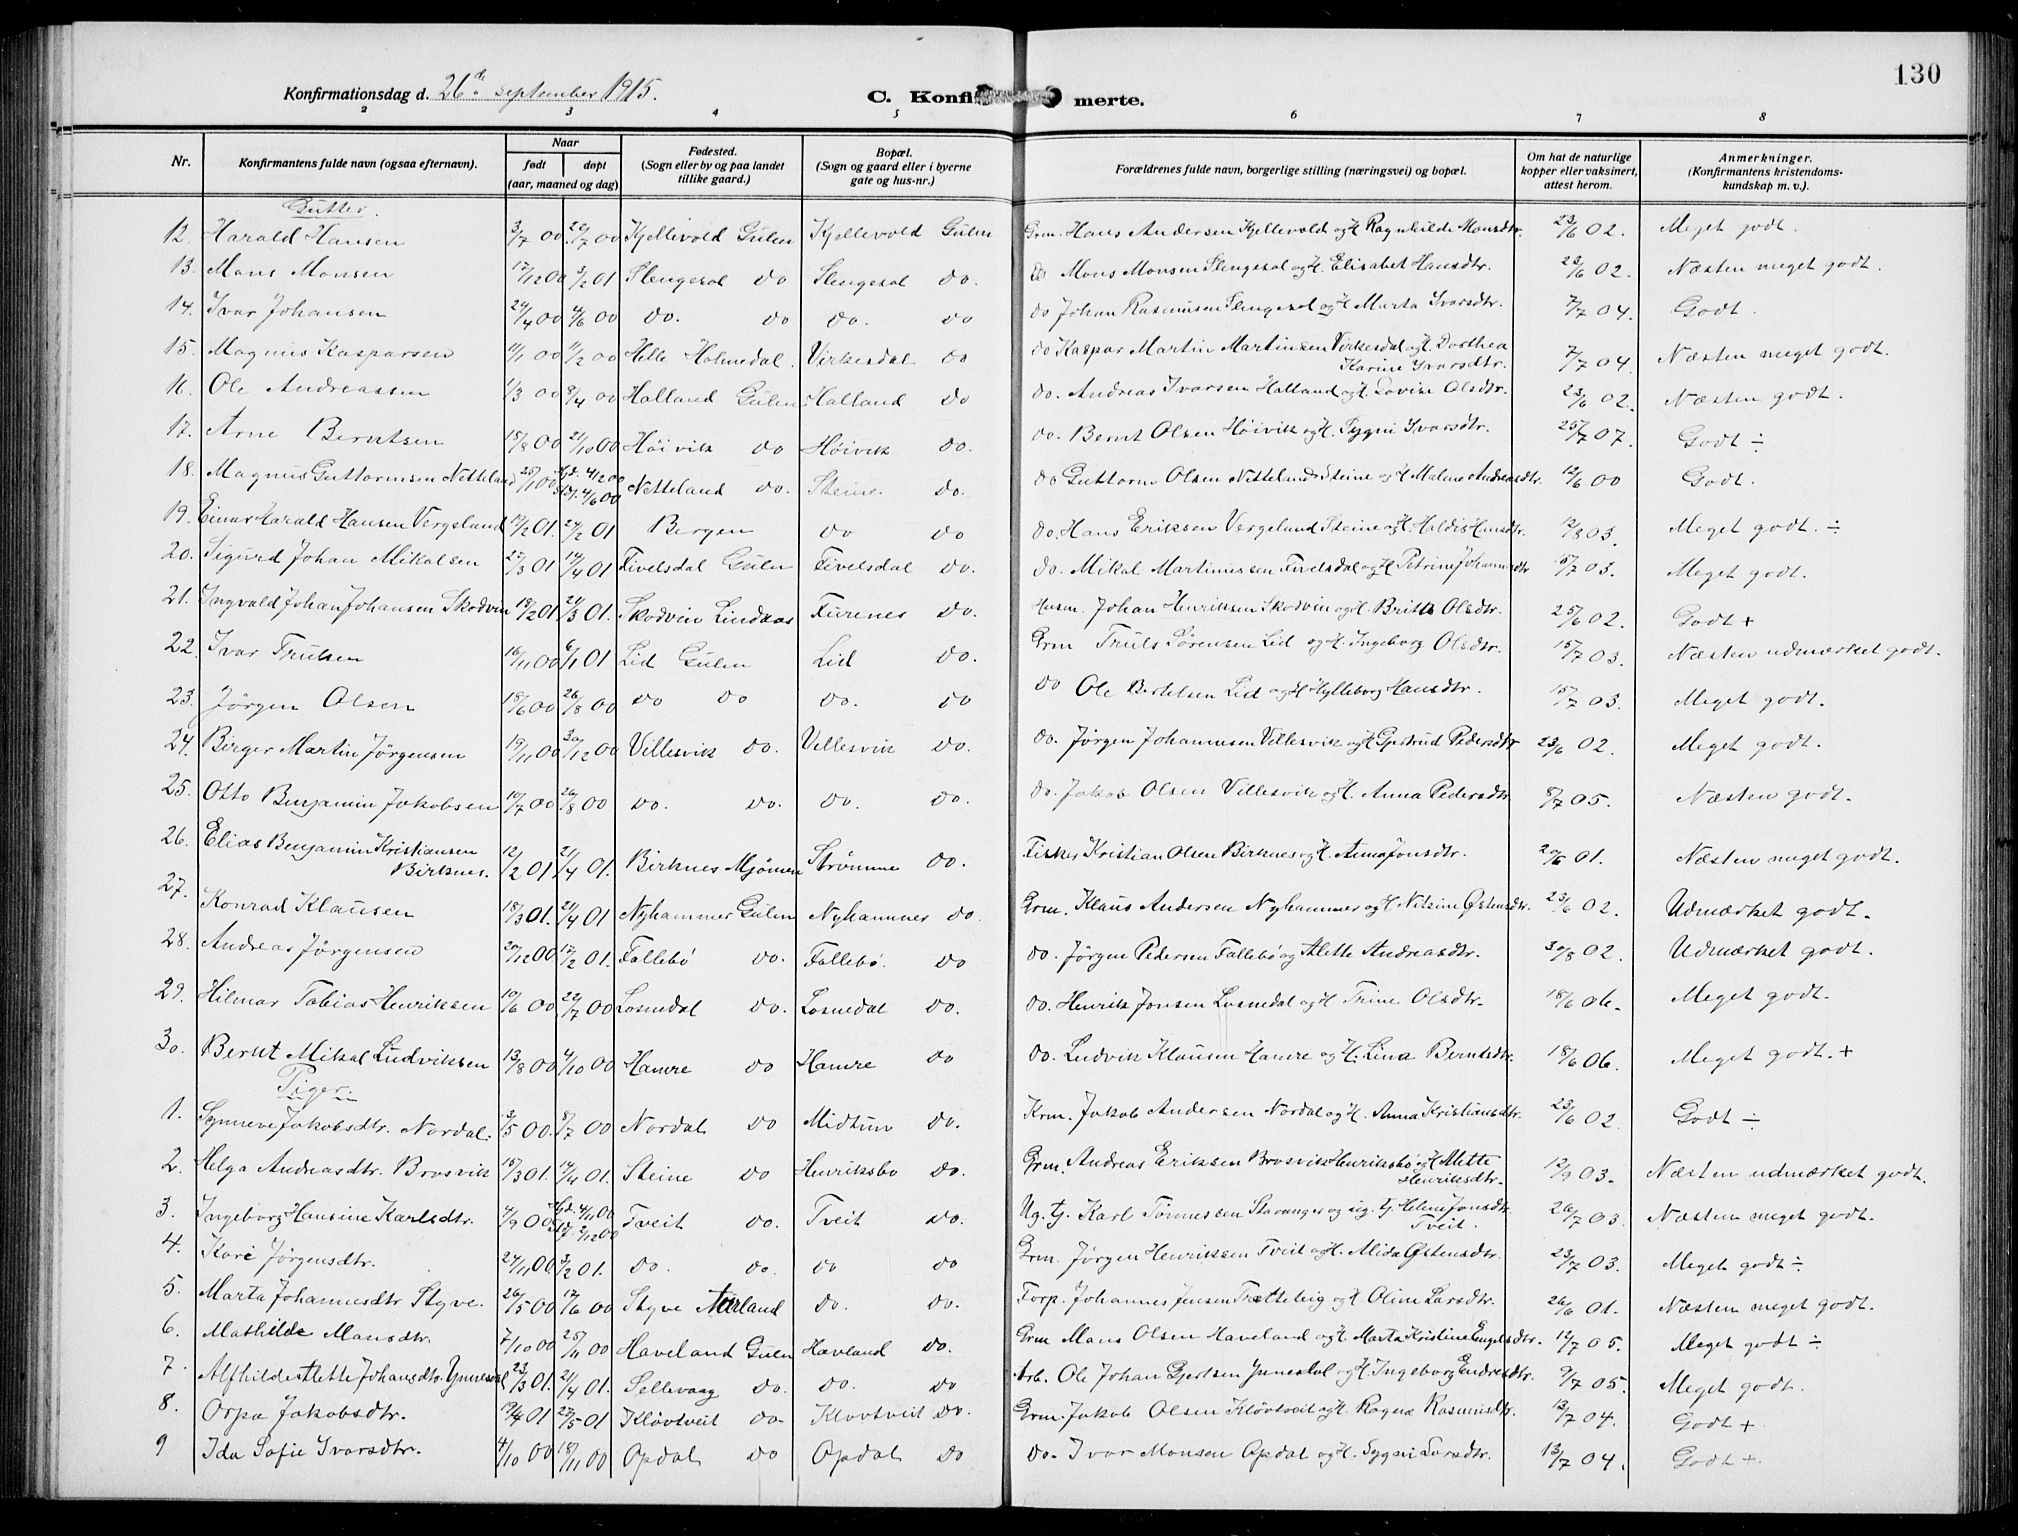 130
Konfirmationsdag d. 26de september 1915.
C. Konfi merte.
2 3 4 5 6 7 8
Nr. Konfirmantens fulde navn (ogsaa efternavn). Naar født døpt (aar, maaned og dag) Fødested. (Sogn eller by og paa landet tillike gaard.) Bopæl. (Sogn og gaard eller i byerne gate og hus-nr.) Forældrenes fulde navn, borgerlige stilling (næringsvei) og bopæl. Om hat de naturlige kopper eller vaksinert, attest herom. Anmerkninger. (Konfirmantens kristendoms-kundskap m. v.).
Gutter.
12. Harald Hansen 3/7 00. 22/7 00 Kjellevold Gulen Kjellevold Gulen Grm. Hans Andersen Kjellevold og H. Ragnhilde Monsdtr. 23/6 02. Meget godt.
13. Mons Monsen 17/12 00 3/2 01 Slengesol do Slengesol do. do Mons Monsen Slengesol og H. Elisabet Hansdtr. 23/6 02. Næsten meget godt.
14. Ivar Johansen 24/4 00 4/6 00 do. do do. do do Johan Rasmusen Slengesol og H Marta Ivarsdtr. 7/7 04. Godt.
15. Magnus Kasparsen 11/1 00 11/2 00 Helle Holmedal. Virkesdal do do Kaspar Martin Martinsen Virkesdal og H. Dorthea Karine Ivarsdtr. 7/7 04. Næsten meget godt.
16. Ole Andreassen 1/3 00 8/4 00 Halland Gulen Halland do do. Andreas Ivarsen Halland og H. Lovise Olsdtr. 23/6 02. Næsten godt.
17. Arne Berntsen 18/8 00 21/10 00 Høivik do Høivik do. do. Bernt Olsen Høivik og H. Sygni Ivarsdtr. 25/7 07. Godt ÷
18. Magnus Guttormsen Netteland 25/1 00 Hjd. 4/2 00 St. 4/6 00 Netteland do. Steine do. do Guttorm Olsen Netteland Steine og H Malene Andreasdtr. 12/6 00 Godt.
19. Einar Harald Hansen Vergeland 19/2 01. 24/2 01 Bergen do do do. Hans Eriksen Vergeland Steine og H. Haldis Hansdtr. 12/8 03. Meget godt. ÷
20. Sigurd Johan Mikalsen 27/3 01 14/4 01 Fivelsdal Gulen Fivelsdal do. do. Mikal Martinussen Fivelsdal og H Petrine Johannesdtr 15/7 03. Meget godt.
21. Ingvald Johan Johansen Skodvin 19/2 01. 24/3 01. Skodvin Lindaas Furenes do. Husm. Johan Henriksen Skodvin og H. Brita Olsdtr. 25/6 02. Godt +
22. Ivar Trulsen 16/11 00 6/1 01 Lid Gulen Lid do. Grm Truls Sørensen Lid og H. Ingeborg Olsdtr. 15/7 03. Næsten udmærket godt.
23. Jørgen Olsen 18/6 00 26/8 00 do do do. do do Ole Bertelsen Lid og H Hylleborg Hansdtr. 15/7 03. Meget godt.
24. Birger Martin Jørgensen 19/11 00 30/12 00 Villesvik do. Villesvik do. do. Jørgen Johannesen Villesvik og H Gjertrud Pedersdtr 23/6 02. Meget godt.
25. Otto Benjamin Jakobsen 10/7 00 26/8 00 do. do. do. do. do. Jakob Olsen Villesvik og H. Anna Pedersdtr 8/7 05. Næsten godt.
26. Elias Benjamin Kristiansen Birknes. 12/2 01. 21/4 01. Birknes Mjømen Strømme do. Fisker Kristian Olsen Birknes og H. Anna Jonsdtr. 20/6 01. Næsten meget godt.
27. Konrad Klausen 18/3 01. 21/4 01 Nyhammer Gulen Nyhammer do. Grm. Klaus Andersen Nyhammer og H Nilsine Østensdtr. 23/6 02. Udmærket godt.
28. Andreas Jørgensen 20/12 00 17/2 01. Fallebø do. Fallebø. do do. Jørgen Pedersen Fallebø og Alette Andreasdtr. 30/8 02. Udmærket godt.
29. Hilmar Tobias Henriksen 10/6 00. 22/7 00 Losnedal do. Losnedal do. do. Henrik Jonsen Losnedal og H Trine Olsdtr. 18/6 06. Meget godt.
30. Bernt Mikal Ludviksen 13/8 00 4/10 00 Hamre do Hamre do do. Ludvik Klausen Hamre og H. Lina Berntsdtr. 18/6 06. Meget godt. +
Piger.
1. Synneve Jakobsdtr. Nordal. 3/5 00. 8/7 00 Nordal do Midtun do. Krm. Jakob Andersen Nordal og H. Anna Kristiansdtr. 23/6 02. Godt ÷
2. Helga Andreasdtr. Brosvik 15/3 01. 14/4 01. Steine do Henriksbo do. Grm. Andreas Eriksen Brosvik Henriksbø og H Mette Henriksdtr. 12/9 03. Næsten udmærket godt.
3. Ingeborg Hansine Karlsdtr. 4/9 00 Hjd. 4/11 00 St. 2/12 00 Tveit do. Tveit do. Ug. tj. Karl Tønnessen Stavanger og ug. tj. Helene Jonsdtr. Tveit. 20/7 03. Næsten meget godt.
4. Kari Jørgensdtr. 24/11 00. 3/2 01. do. do. do do Grm. Jørgen Henriksen Tveit og H. Mida Østensdtr. 23/7 03. Meget godt ÷
5. Marta Johannesdtr Styve. 26/5 00 17/6 00 Styve do. do. Forp. Johannes Jensen Trætteteig og H. Oline Larsdtr. 26/6 01. Næsten meget godt.
6. Mathilde Mansdtr. 7/10 00 25/11 00 Haveland Gulen Havland do. Grm Mans Olsen Haveland og H. Marta Kristine Engelsdtr. 12/7 05. Meget godt ÷
7. Alfhilde Alette Johansdtr. Ynnesdal 23/3 01. 21/4 01. Sellevaag do. do. do Arb. Ole Johan Gjertsen Ynnesdal og H Ingeborg Endresdtr. 9/7 05. Meget godt.
8. Orpa Jakobsdtr. 19/4 01 27/5 01 Kløvtveit do. Kløvtveit do. Grm. Jakob Olsen Kløvtveit og H. Ragna Rasmusdtr. 13/7 04. Godt +
9 Ida Sofie Ivarsdtr. 4/10 00 18/11 00 Opdal do Opdal do do. Ivar Monsen Opdal og H. Sygni Larsdtr. 13/7 04. Godt +.